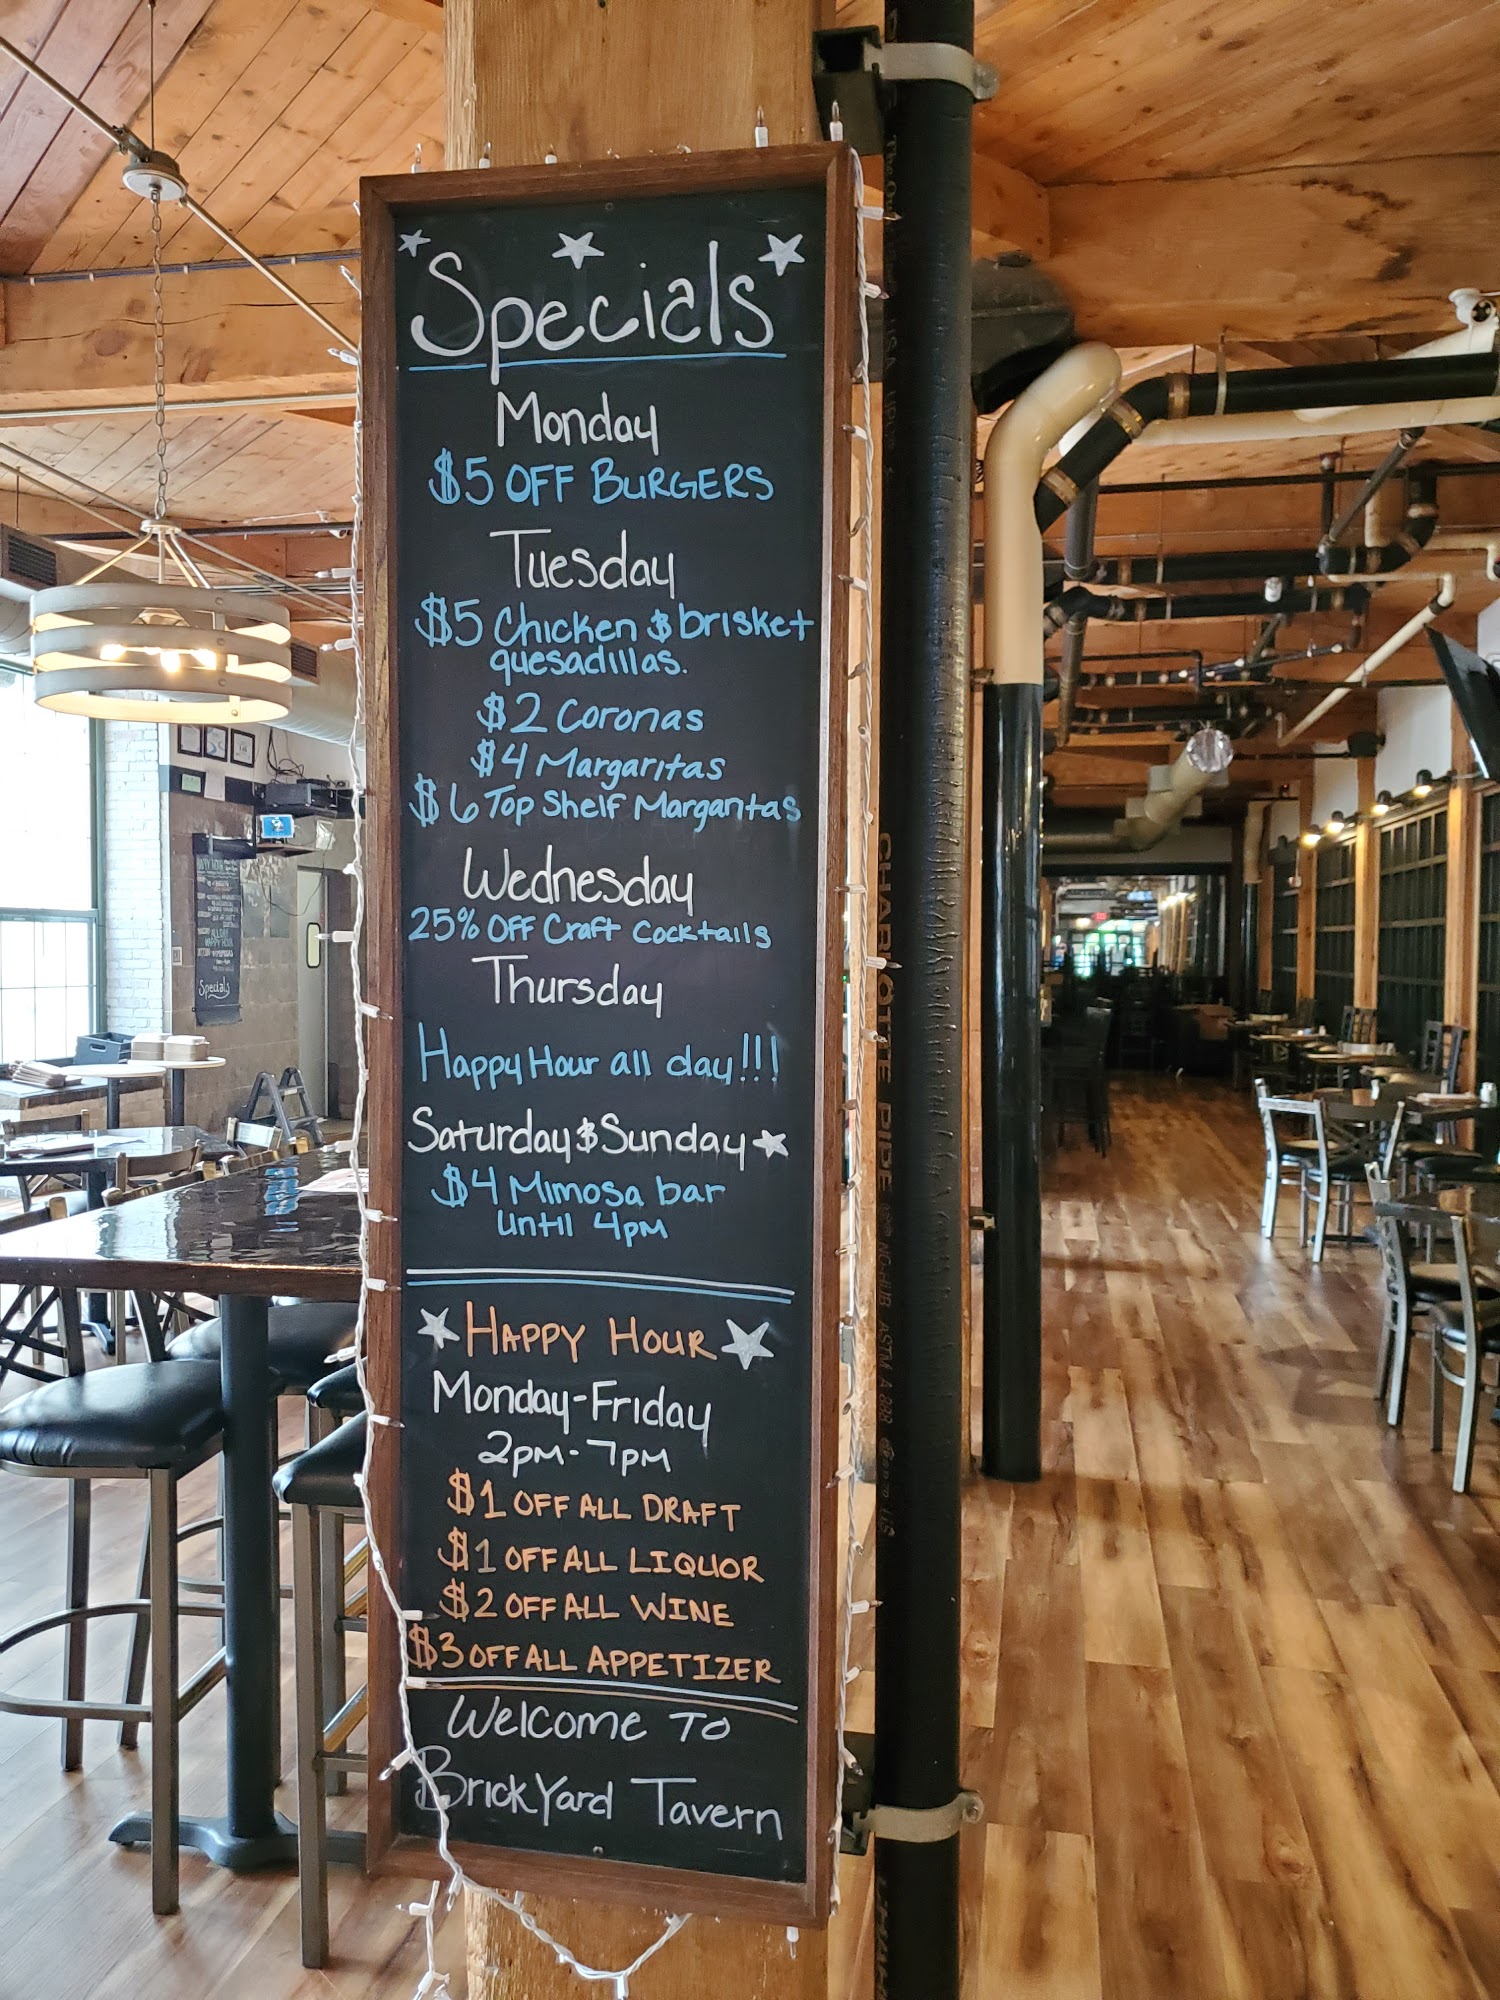 Specials
Monday
$5 OFF BURGERS
Tuesday
$5 Chicken & brisket
quesadillas.
$2 Coronas
$4 Margaritas
$6 Top Shelf Margaritas
Wednesday
25% OFF Craft Cocktails
Thursday
Happy Hour all day!!!
Saturday & Sunday
$4 Mimosa bar
until 4pm
HAPPY HOUR
Monday-Friday
2pm-7pm
$1 OFF ALL DRAFT
$1 OFF ALL LIQUOR
$2 OFF ALL WINE
$3 OFF ALL APPETIZER
Welcome TO
BrickYard Tavern
CHARLOTTE PIPE
ASTM A 888
Specials